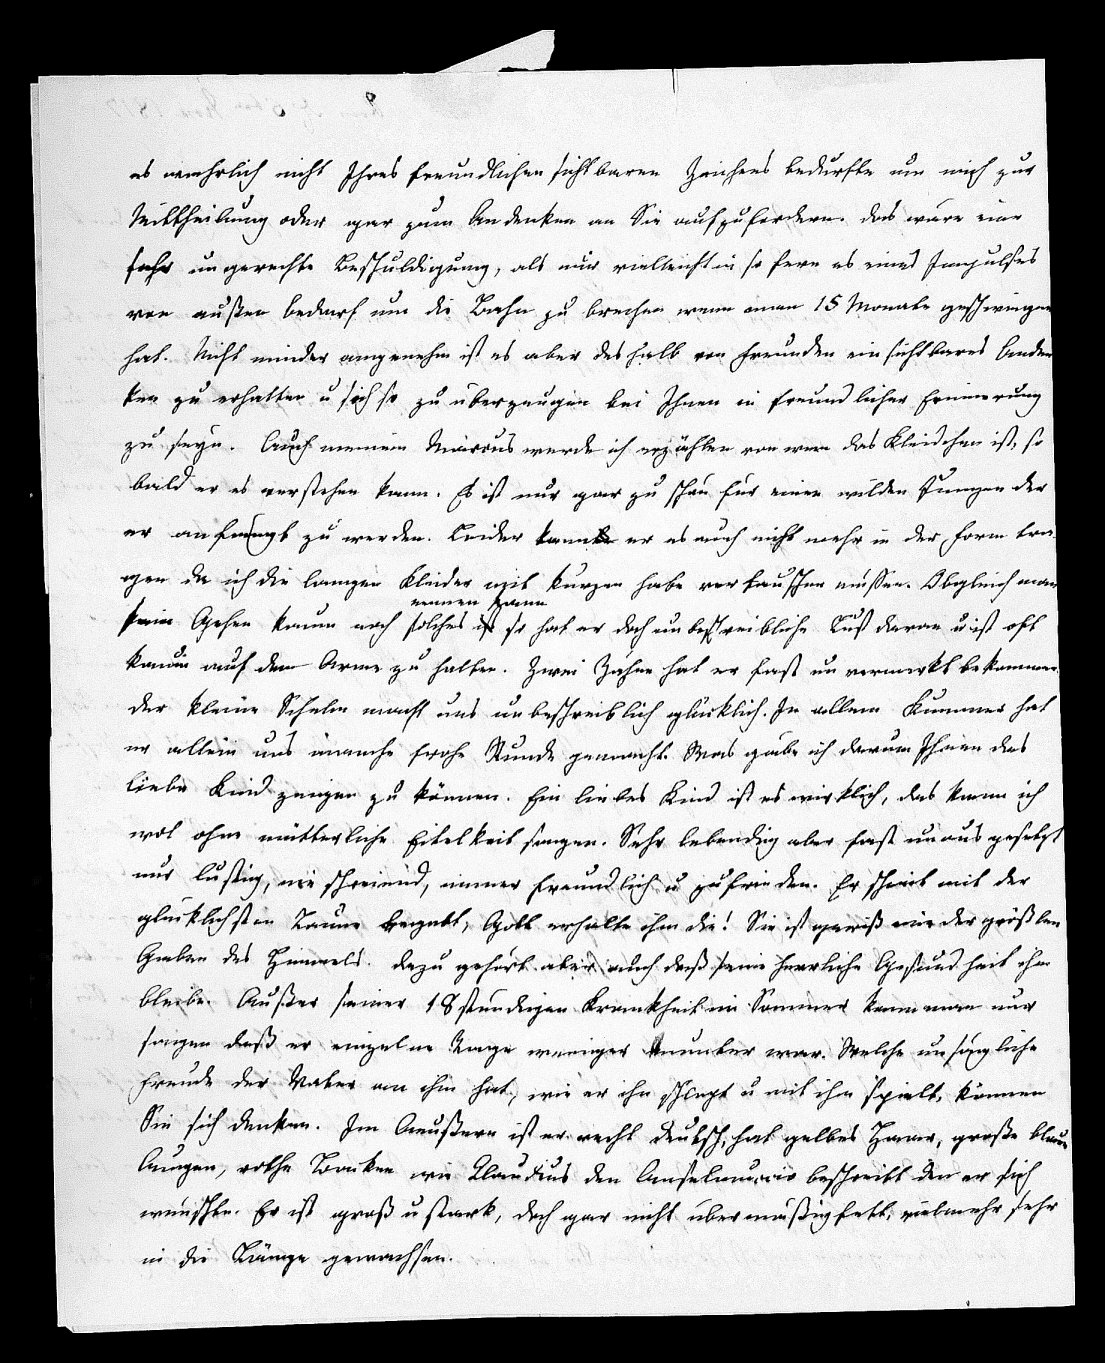 es wahrlich nicht Ihres freundlichen sichtbaren Zeichens bedurfte um mich zur
Mittheilung oder gar zum Andenken an Sie aufzufordern. Das wäre eine
sehr ungerechte Beschuldigung, als nur vielleicht in so fern es eines Impulses
von außen bedarf um die Bahn zu brechen wenn man 15 Monate geschwiegen
hat. Nicht minder angenehm ist es aber deshalb von Freunden ein sichtbares Anden
ken zu erhalten u sich so zu überzeugen bei Ihnen in freundlicher Erinnerung
zu seyn. Auch meinem Marcus werde ich erzählen von wem das Kleidchen ist, so
bald er es verstehen kann. Es ist nur gar zu schön für einen wilden Jungen der
er anfängt zu werden. Leider kann er es auch nicht mehr in der Form tra
gen da ich die langen Kleider mit kurzen habe vertauschen müssen. Obgleich man
nennen kann
sein Gehen kaum noch solches so hat er doch unbeschreibliche Lust daran u ist oft
kaum auf dem Arme zu halten. Zwei Zähne hat er fast unvermerkt bekommen.
der kleine Schelm macht uns unbeschreiblich glücklich. In allem Kummer hat
er allein uns manche frohe Stunde gemacht. Was gäbe ich darum Ihnen das
liebe Kind zeigen zu können. Ein liebes Kind ist es wirklich, das kann ich
wol ohne mütterliche Eitelkeit sagen. Sehr lebendig aber fast unausgesetzt
nur lustig, nie schreiend, immer freundlich u zufrieden. Er scheint mit der
glücklichsten Laune begabt, Gott erhalte ihm die! Sie ist gewiß eine der größten
Gaben des Himmels. Dazu gehört aber auch daß seine herrliche Gesundheit ihm
bleibe. Außer seiner 18stündigen Krankheit im Sommer kann man nur
sagen daß er einzelne Tage weniger munter war. Welche unsägliche
Freude der Vater an ihm hat, wie er ihn pflegt u mit ihm spielt, können
Sie sich denken. Im Aeußern ist er recht deutsch, hat gelbes Haar, große blaue
Augen, rothe Backen wie Claudius den Anselmuccio beschreibt den er sich
wünschte. Er ist groß u stark, doch gar nicht übermäßig fett, vielmehr sehr
in die Länge gewachsen.